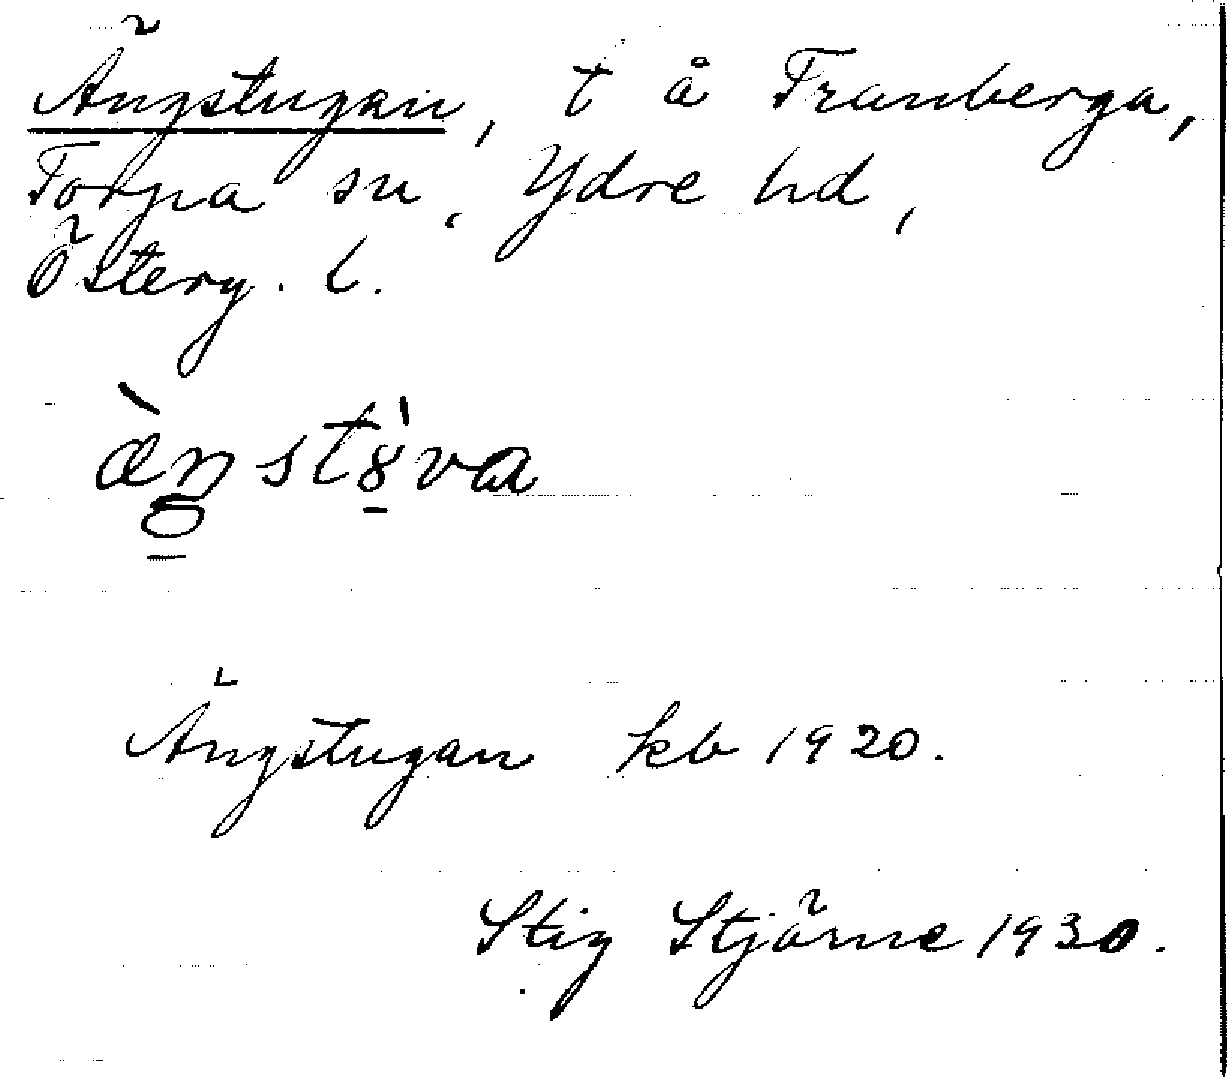 Ängstugan, t å Tranberga,
Torpa sn, Ydre hd,
Österg. l.
Ängstugan kb 1920.
Stig Stjärne 1930.